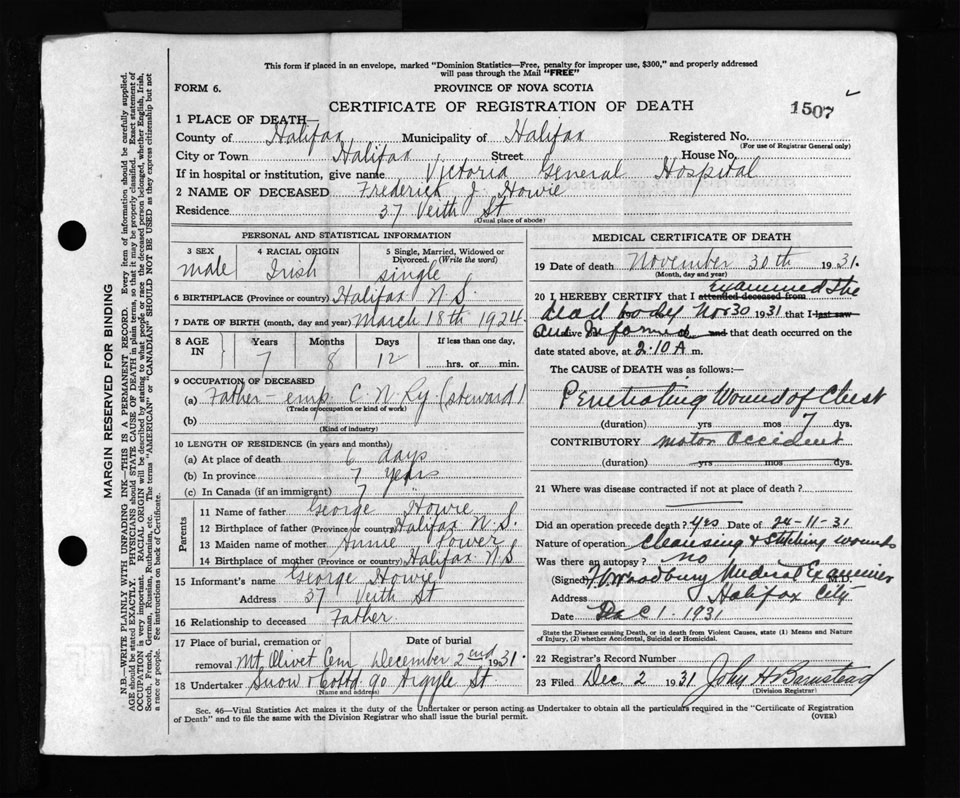 This form if placed in an envelope, marked "Dominion Statistics—Free, penalty for improper use, $300," and properly addressed
will pass through the Mail "FREE"
FORM 6.
PROVINCE OF NOVA SCOTIA
CERTIFICATE OF REGISTRATION OF DEATH
1507
1 PLACE OF DEATH
County of Halifax Municipality of Halifax Registered No.
(For use of Registrar General only)
City or Town Halifax Street House No.
If in hospital or institution, give name Victoria General Hospital
2 NAME OF DECEASED Frederick J. Howie
Residence 37 Veith St
(Usual place of abode)
PERSONAL AND STATISTICAL INFORMATION
3 SEX 4 RACIAL ORIGIN 5 Single, Married, Widowed or
Divorced. (Write the word)
male Irish single
6 BIRTHPLACE (Province or country) Halifax N.S.
7 DATE OF BIRTH (month, day and year) March 18th 1924
8 AGE IN Years Months Days If less than one day,
7 8 12 hrs. or min.
9 OCCUPATION OF DECEASED
(a) Father - emp C N Ry (steward)
(Trade or occupation or kind of work)
(b)
(Kind of industry)
10 LENGTH OF RESIDENCE (in years and months)
(a) At place of death 6 days
(b) In province 7 years
(c) In Canada (if an immigrant) 7
Parents
11 Name of father George Howie
12 Birthplace of father (Province or country) Halifax N.S.
13 Maiden name of mother Annie Power
14 Birthplace of mother (Province or country) Halifax N.S
15 Informant's name George Howie
Address 37 Veith St
16 Relationship to deceased Father.
17 Place of burial, cremation or Date of burial
removal Mt. Olivet Cem December 2nd 1931.
18 Undertaker Snow & Co Ltd 90 Argyle St
(Name and address)
MEDICAL CERTIFICATE OF DEATH
19 Date of death November 30th 1931.
(Month, day and year)
20 I HEREBY CERTIFY that I attended deceased from examined the
dead body Nov 30 1931 that I last saw
alive and informed and that death occurred on the
date stated above, at 2.10 A m.
The CAUSE of DEATH was as follows:
Penetrating Wound of Chest
(duration) yrs mos 7 dys.
CONTRIBUTORY motor accident
(duration) yrs mos dys.
21 Where was disease contracted if not at place of death?
Did an operation precede death? yes Date of 24-11-31
Nature of operation Cleansing & Stitching wounds
Was there an autopsy? no
(Signed) Woodbury Medical Examiner M.D.
Address Halifax City
Date Dec 1. 1931
State the Disease causing Death, or in death from Violent Causes, state (1) Means and Nature
of Injury, (2) whether Accidental, Suicidal or Homicidal.
22 Registrar's Record Number
23 Filed Dec 2 1931 John H Barnstead
(Division Registrar)
Sec. 46—Vital Statistics Act makes it the duty of the Undertaker or person acting as Undertaker to obtain all the particulars required in the "Certificate of Registration
of Death" and to file the same with the Division Registrar who shall issue the burial permit.
(OVER)
MARGIN RESERVED FOR BINDING
N.B.—WRITE PLAINLY WITH UNFADING INK—THIS IS A PERMANENT RECORD. Every item of information should be carefully supplied.
AGE should be stated EXACTLY. PHYSICIANS should STATE CAUSE OF DEATH in plain terms, so that it may be properly classified. Exact statement of
OCCUPATION is very important. RACIAL ORIGIN will be described by stating to what people or race the deceased person belonged, whether English, Irish,
Scotch, French, German, Russian, Ruthenian, etc. The terms "AMERICAN" or "CANADIAN" SHOULD NOT BE USED as they express citizenship but not
a race or people. See instructions on back of Certificate.